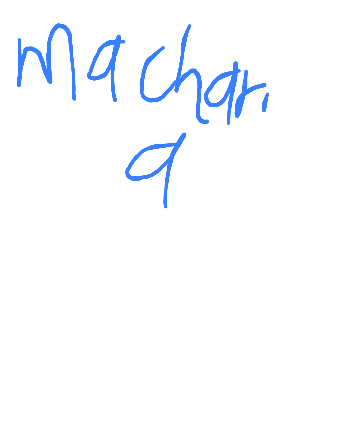 Machari
a